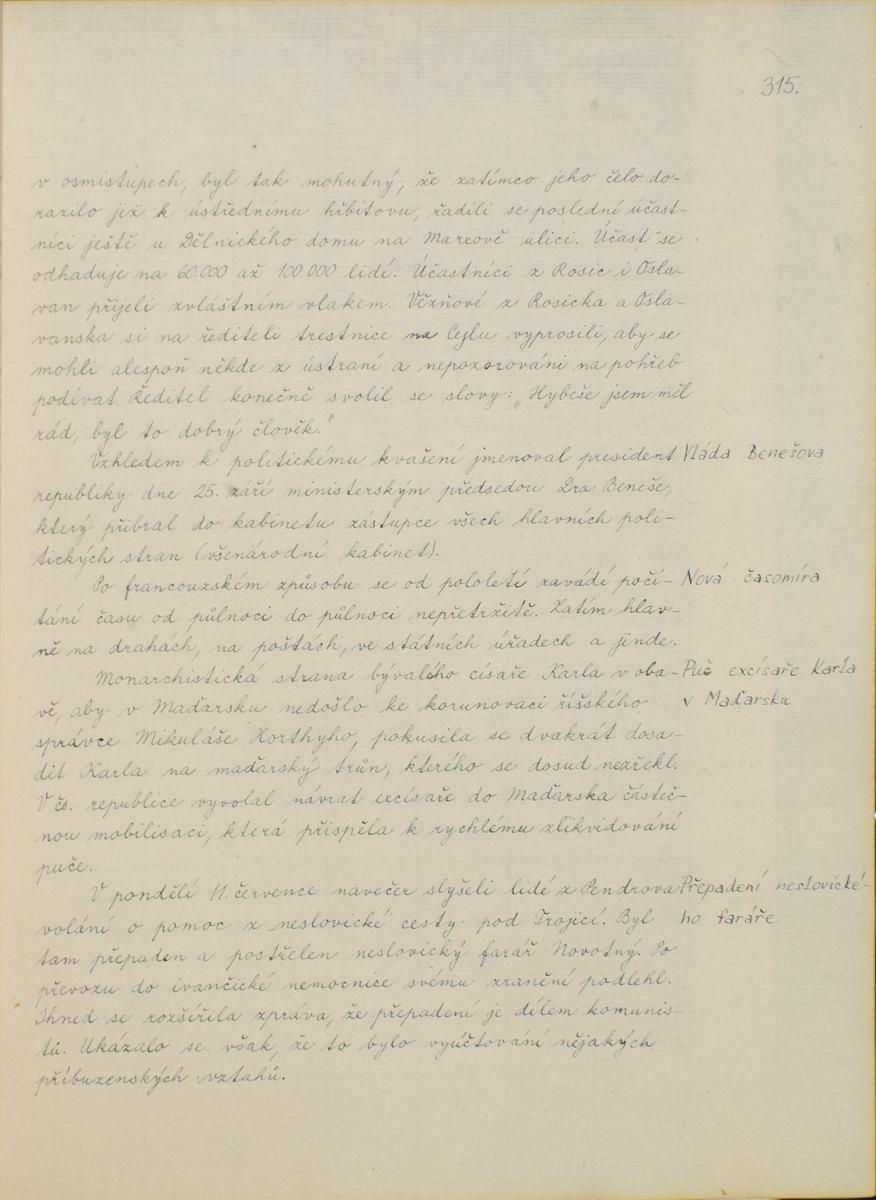 315.
v osmistupech, byl tak mohutný, že zatímco jeho čelo do-
razilo již k ústřednímu hřbitovu, řadili se poslední účast-
níci ještě u Dělnického domu na Marxově ulici. Účast se
odhaduje na 60.000 až 100.000 lidí. Účastníci z Rosic i Osla-
van přijeli zvláštním vlakem. Vězňové z Rosicka a Osla-
vanska si na řediteli trestnice na Cejlu vyprosili, aby se
mohli alespoň někde z ústraní a nepozorováni na pohřeb
podívat. Ředitel konečně svolil se slovy: „Hybeše jsem měl
rád, byl to dobrý člověk."
Vzhledem k politickému kvašení jmenoval president
Vláda Benešova
republiky dne 25. září ministerským předsedou Dra Beneše,
který přibral do kabinetu zástupce všech hlavních poli-
tických stran (všenárodní kabinet).
Po francouzském způsobu se od pololetí zavádí počí-
Nová časomíra
tání času od půlnoci do půlnoci nepřetržitě. Zatím hlav-
ně na drahách, na poštách, ve státních úřadech a jinde.
Monarchistická strana bývalého císaře Karla v oba-
Puč excísaře Karla
vě, aby v Maďarsku nedošlo ke korunovaci říšského
v Maďarsku
správce Mikuláše Horthyho, pokusila se dvakrát dosa-
dit Karla na maďarský trůn, kterého se dosud nezřekl.
V čs. republice vyvolal návrat excísaře do Maďarska částeč-
nou mobilisaci, která přispěla k rychlému zlikvidování
puče.
V pondělí 11. července navečer slyšeli lidé z Pendrova
Přepadení neslovické-
volání o pomoc z neslovické cesty pod Trojicí. Byl
ho faráře
tam přepaden a postřelen neslovický farář Novotný. Po
převozu do ivančické nemocnice svému zranění podlehl.
Ihned se rozšířila zpráva, že přepadení je dílem komunis-
tů. Ukázalo se však, že to bylo vyúčtování nějakých
příbuzenských vztahů.